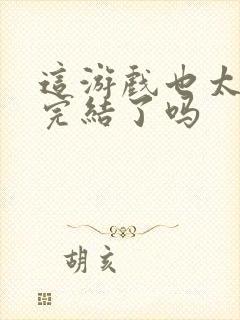 這游戲也太
完結了吗
胡亥